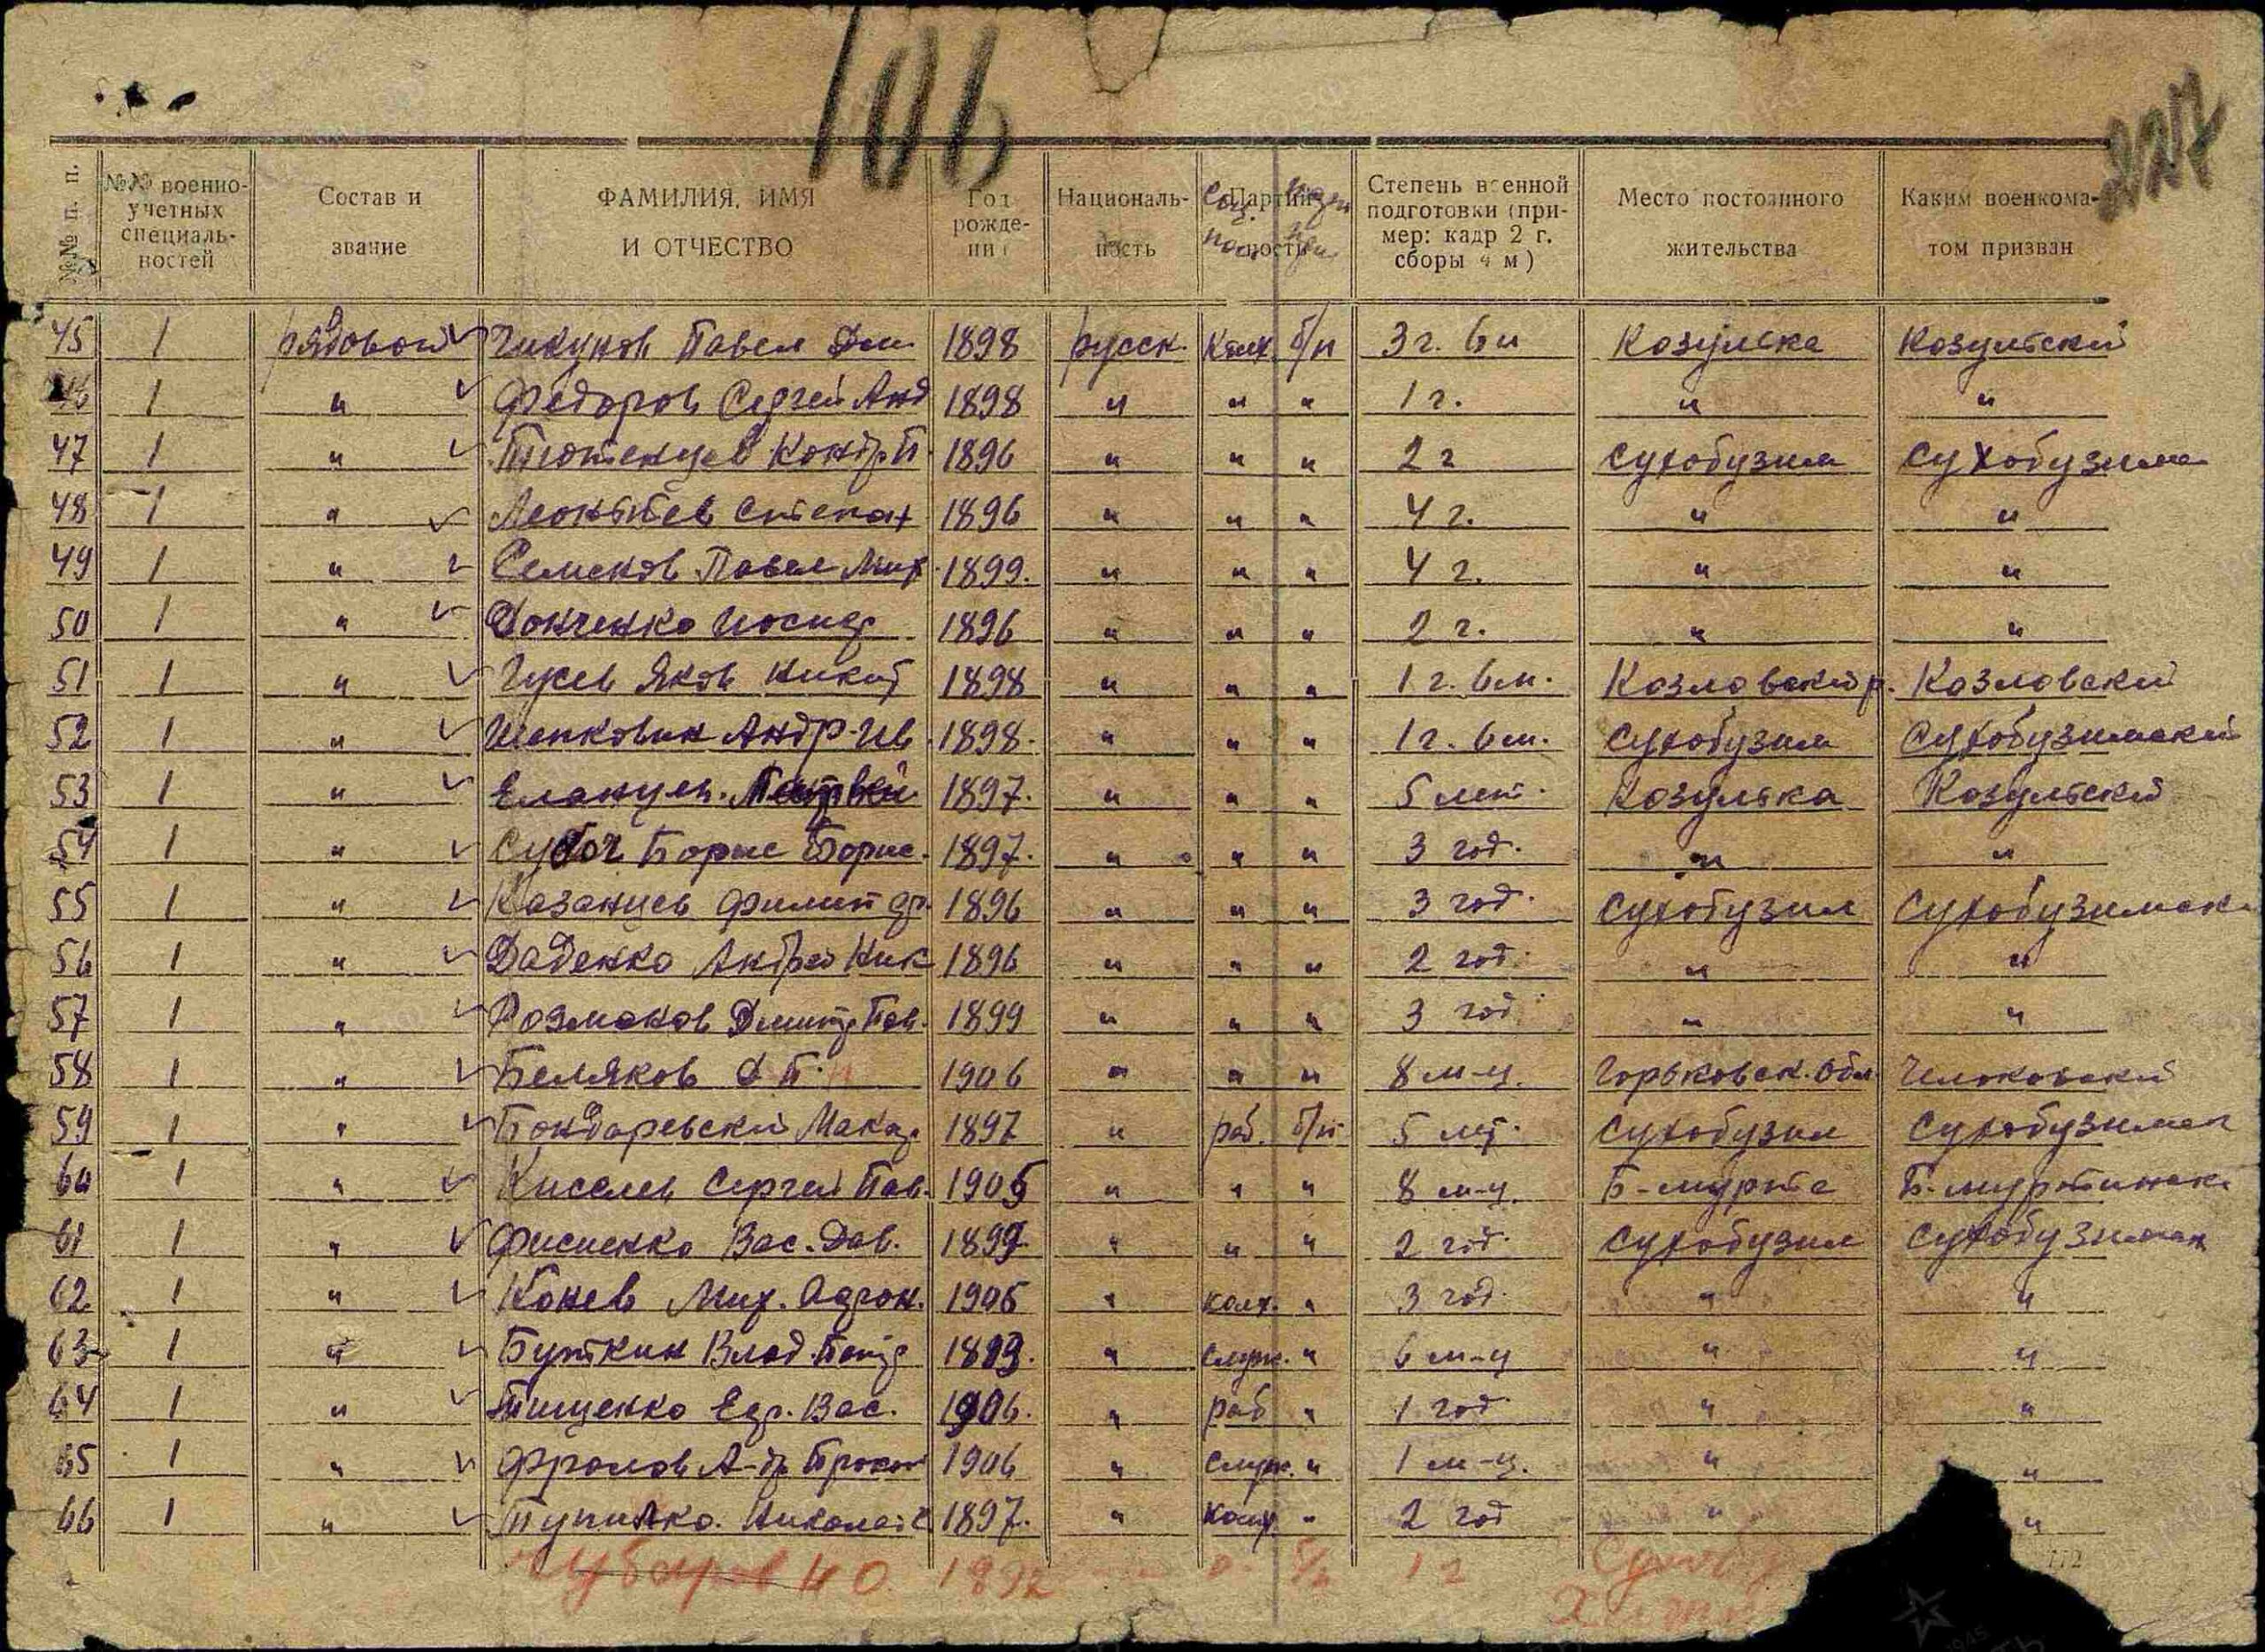 106
227
№№ п. п. №№ военно-учетных специаль-ностей Состав и звание ФАМИЛИЯ, ИМЯ И ОТЧЕСТВО Год рожде-ни Националь-ность Партий-ность Степень военной подготовки (при-мер: кадр 2 г. сборы 4 м) Место постоянного жительства Каким военкома-том призван
45 1 рядовой Чикунов Павел Дми 1898 русск. Колх. б/п 3 г. 6 м Козулька Козульский
46 1 " Федоров Сергей Анд 1898 " " " 1 г. " "
47 1 " Тютенцев Кондр П. 1896 " " " 2 г Сухобузим Сухобузим
48 1 " Леонтьев Степан 1896 " " " 4 г. " "
49 1 " Семеков Павел Мих. 1899. " " " 4 г. " "
50 1 " Донченко Иосиф 1896 " " " 2 г. " "
51 1 " Гусев Яков Никит 1898 " " " 1 г. 6 м. Козловский р. Козловский
52 1 " Андр. Ив. 1898. " " " 1 г. 6 м. Сухобузим Сухобузимский
53 1 " Матвей 1897. " " " 5 лет. Козулька Козульский
54 1 " Субоч Борис Борис. 1897. " " " 3 год. " "
55 1 " Казанцев Филип 1896 " " " 3 год. Сухобузим Сухобузимск
56 1 " Даденко Андрей Ник 1896 " " " 2 год. " "
57 1 " Дмитр Пав. 1899 " " " 3 год. " "
58 1 " Беляков П. 1906 " " " 8 м-ц. Горьковск. обл.
59 1 " Бондаревский Макар 1897 " раб. б/п 5 лет. Сухобузим Сухобузимск
60 1 " Киселев Сергей Пав. 1905 " " " 8 м-ц. Б-мурта Б-муртинск
61 1 " Фисиенко Вас. Дав. 1899 " " " 2 год. Сухобузим Сухобузимск
62 1 " Конев Мих. 1905 " колх. " 3 год. " "
63 1 " Буткин Влад. Петр 1899. " служ. " 6 м-ц " "
64 1 " Тищенко Егр. Вас. 1906. " раб " 1 год. " "
65 1 " Фролов А-др Прокоп 1906 " служ. " 1 м-ц. " "
66 1 " Тупилко Николай 1897. " Колх. " 2 год " "
Чубаров И О. 1892 б/п 1 г